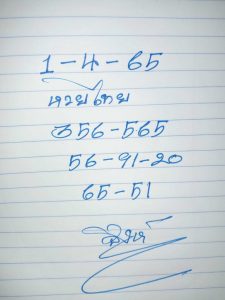 1-4-65
หวยไทย
356-565
56-91-20
65-51